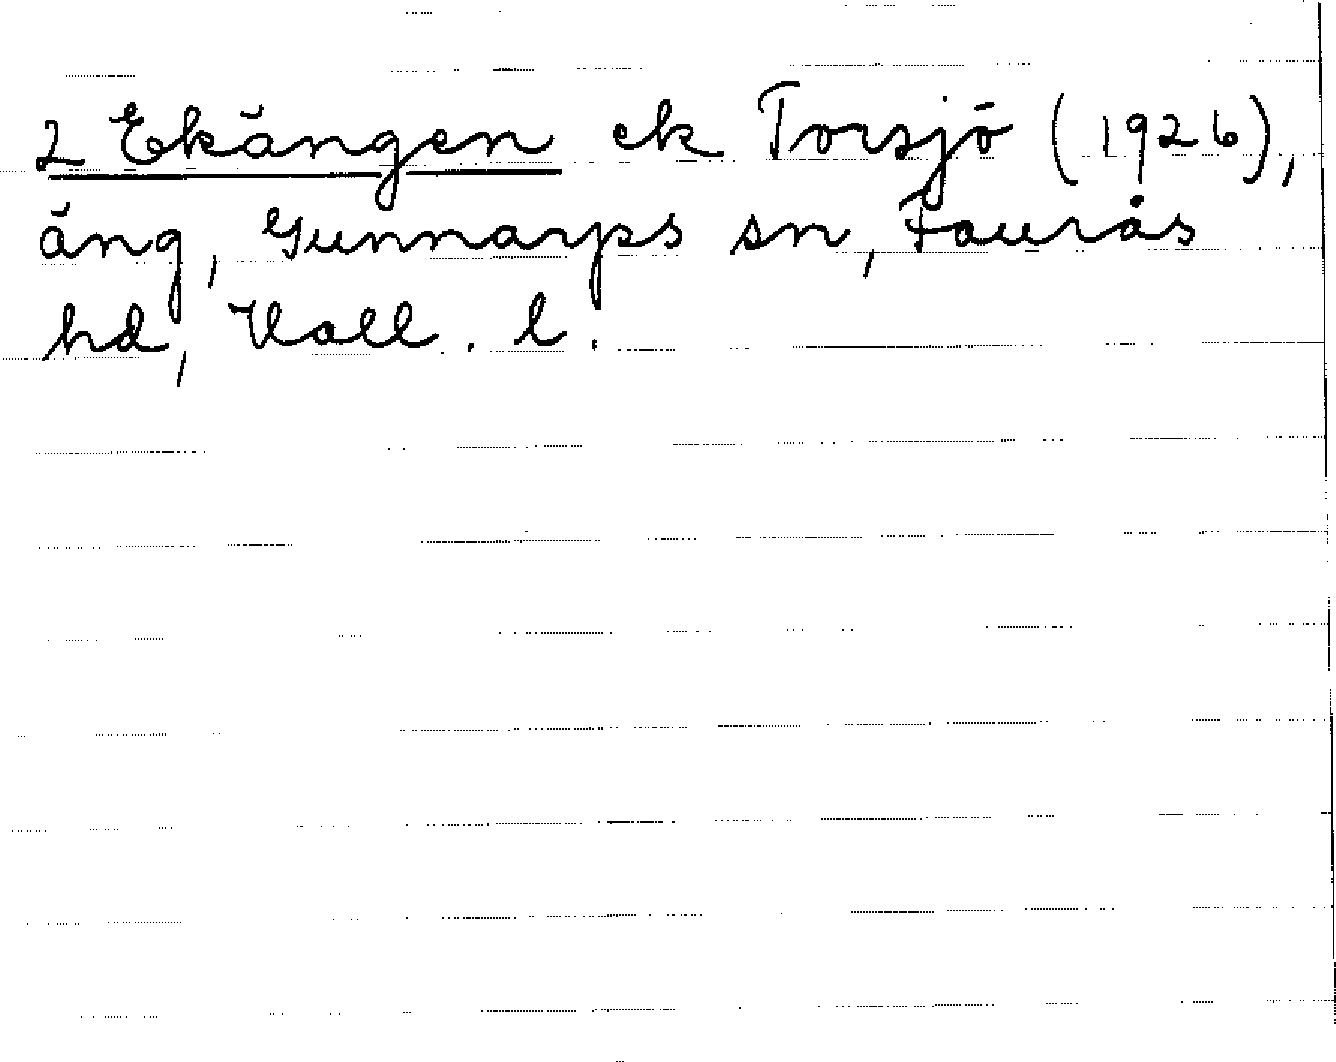 2 Ekängen ek Torsjö (1926),
äng, Gunnarps sn, Faurås
hd, Hall. l.